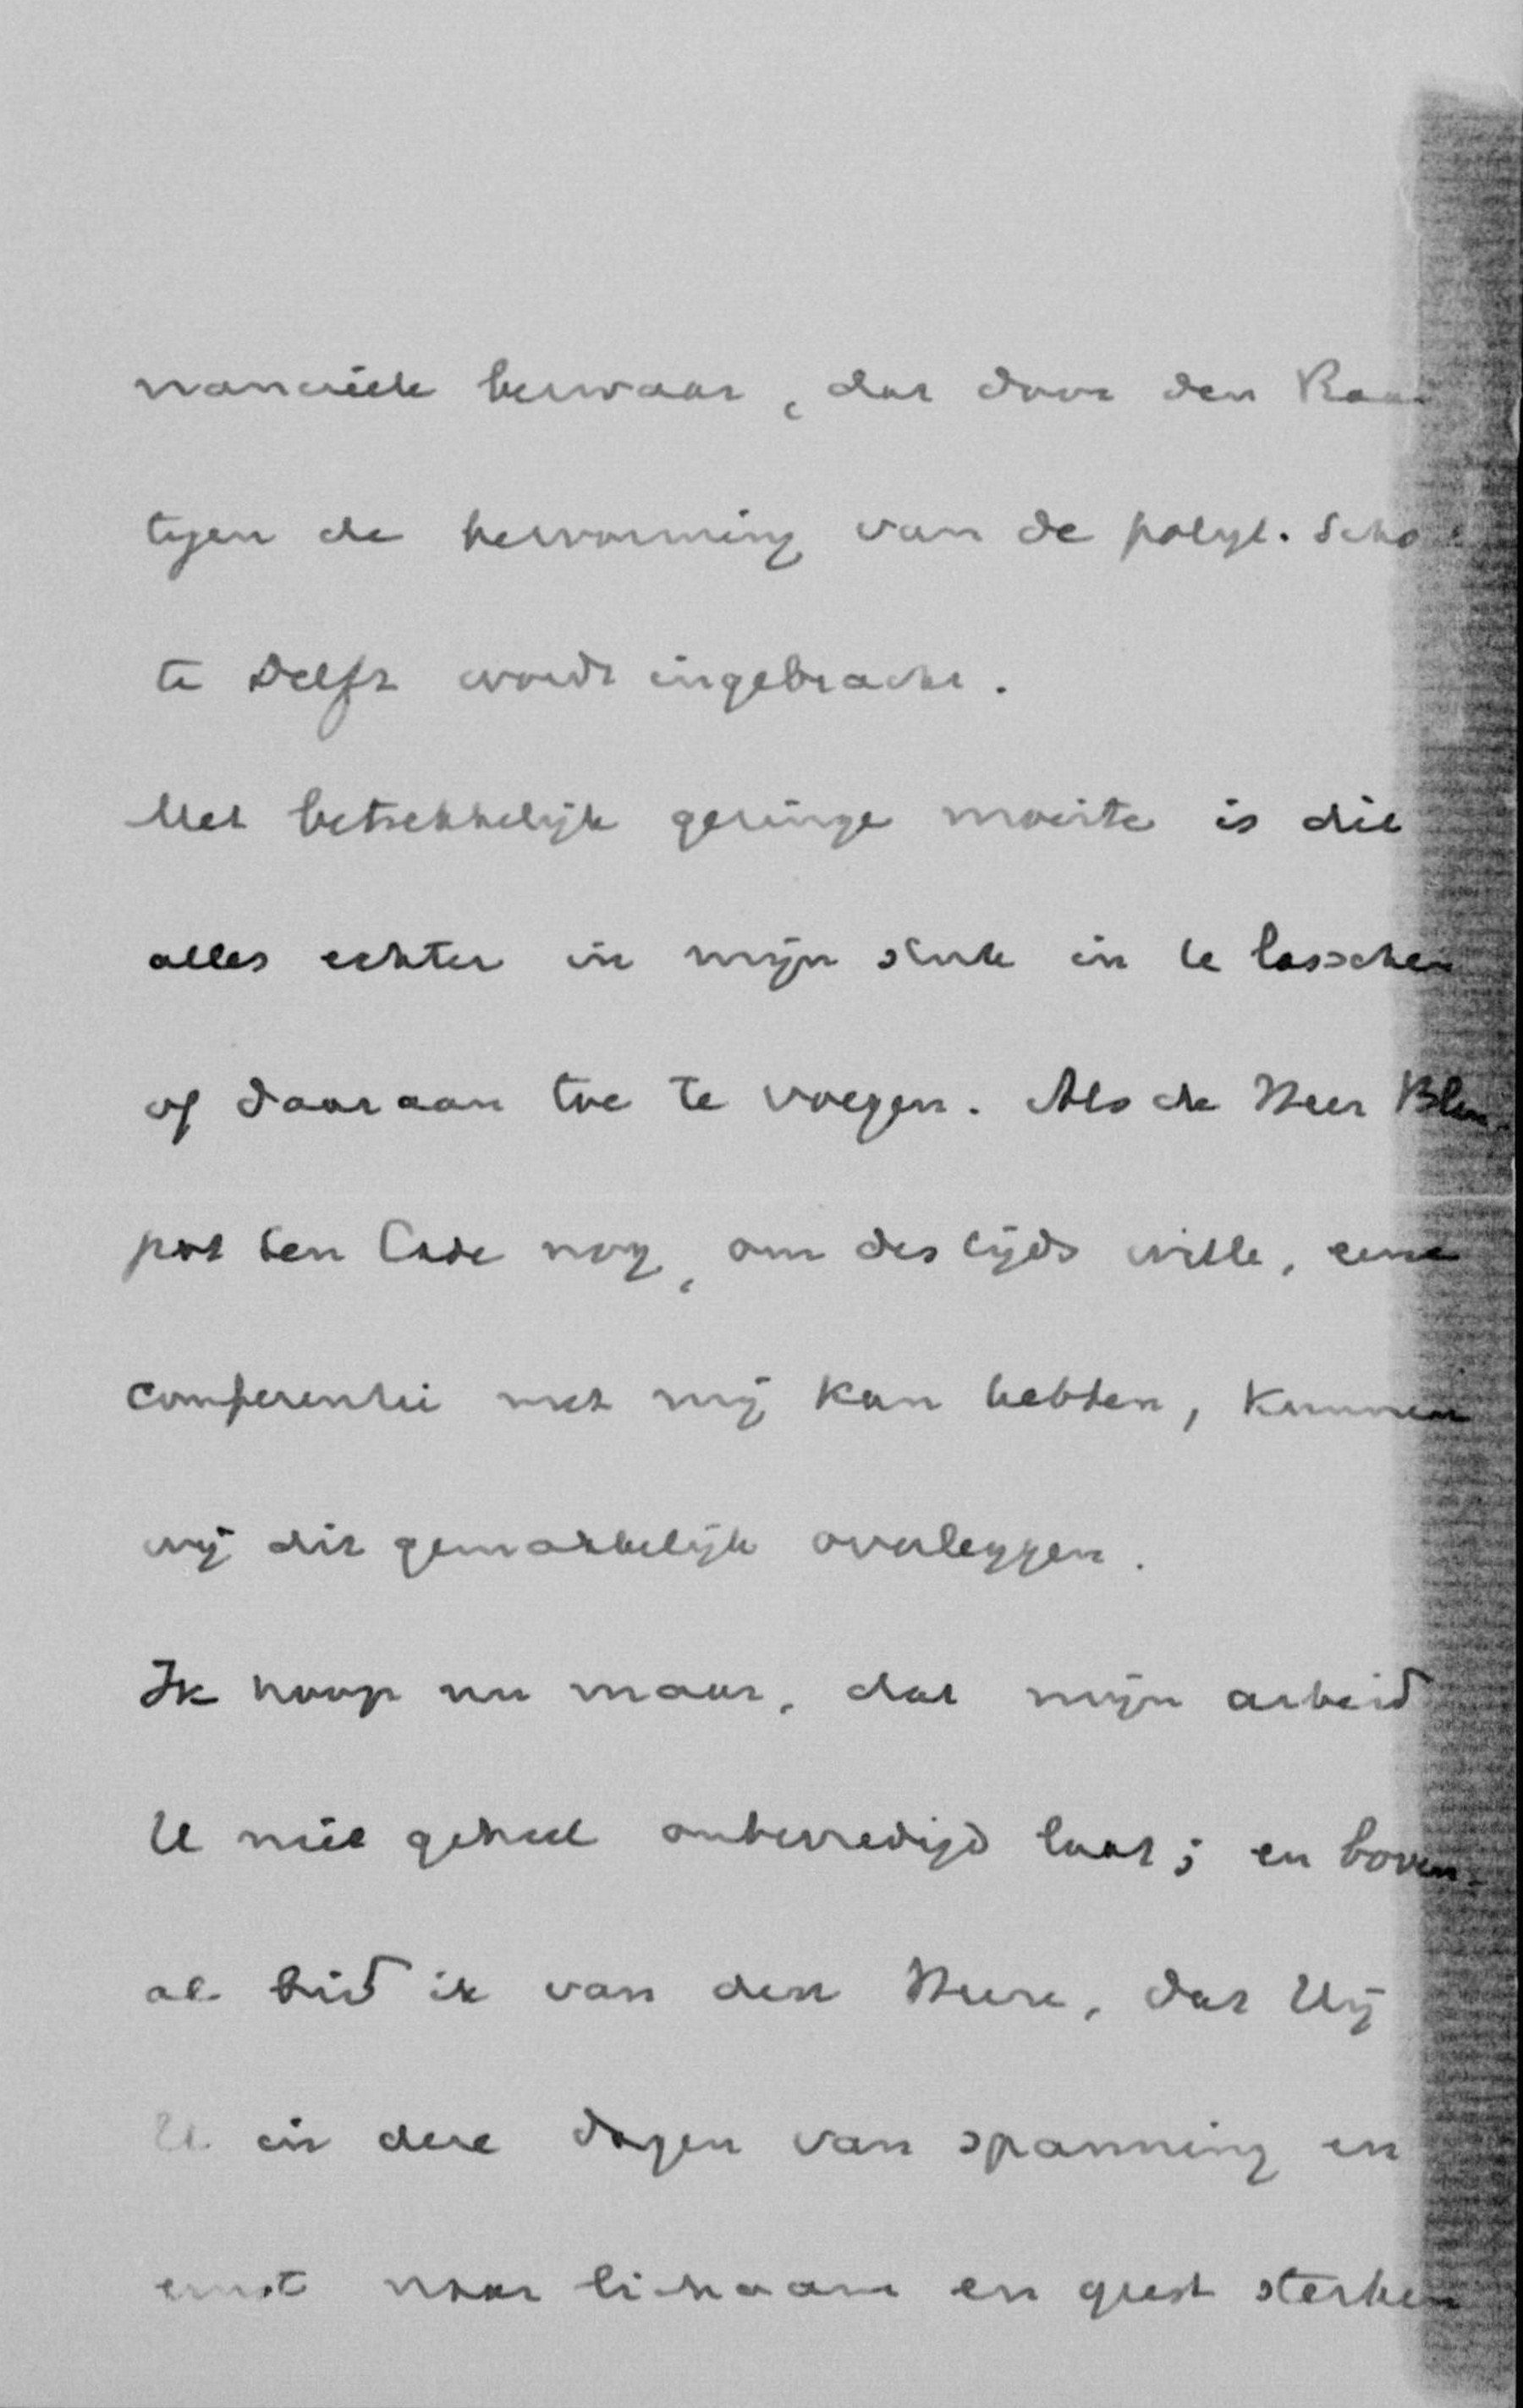 nancieele bezwaar, dat door den Raa
tegen de hervorming van de polyt. Scho
te Delft wordt ingebracht.
Met betrekkelijk geringe moeite is dit
alles echter in mijn stuk in te lasschen
of daaraan toe te voegen. Als de Heer Blom
pot ten Cate nog, om des tijds wille, eene
conferentie met mij kan hebben, kunnen
wij dit gemakkelijk overleggen.
Ik hoop nu maar, dat mijn arbeid
U niet geheel onbevredigd laat; en boven-
al bid ik van den Heere, dat Hij
U in deze dagen van spanning en
ernst naar lichaam en geest sterken